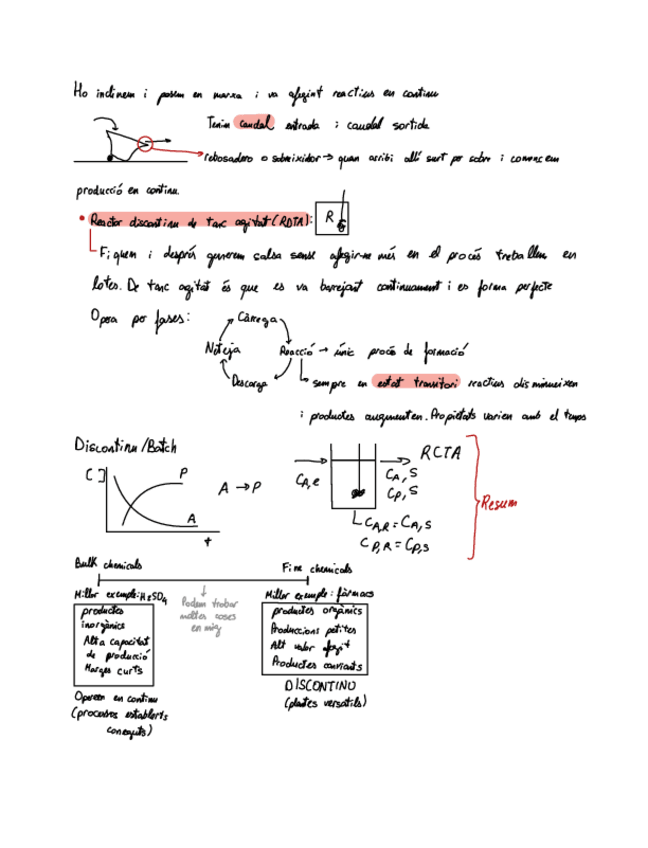 Ho inclinem i posem en marxa i va afegint reactius en continu
Tenim caudal entrada i caudal sortida
rebosadero o sobreixidor → quan arribi allí surt per sobre i comencem
producció en continu.
• Reactor discontinu de tanc agitat (RDTA): R
Fiquem i després generem salsa sense afegir-ne més en el procés treballem en
lotes. De tanc agitat és que es va barrejant continuament i es forma perfecte
Opera por fases:
Càrrega
Neteja
Reacció → únic procés de formació
Descarga
sempre en estat transitori reactius disminueixen
i productes augmenten. Propietats varien amb el temps
Discontinu/Batch
[ ]
P
A
t
A → P
CA,e
RCTA
CA,S
CP,S
CA,R = CA,S
CP,R = CP,S
Resum
Bulk chemicals
Fine chemicals
Millor exemple: H2SO4
Millor exemple: fàrmacs
Podem trobar
moltes coses
en mig
productes
inorgànics
Alta capacitat
de producció
Marges curts
productes orgànics
Produccions petites
Alt valor afegit
Productes canviants
Operen en continu
(processos establerts
coneguts)
DISCONTINU
(plantes versatils)